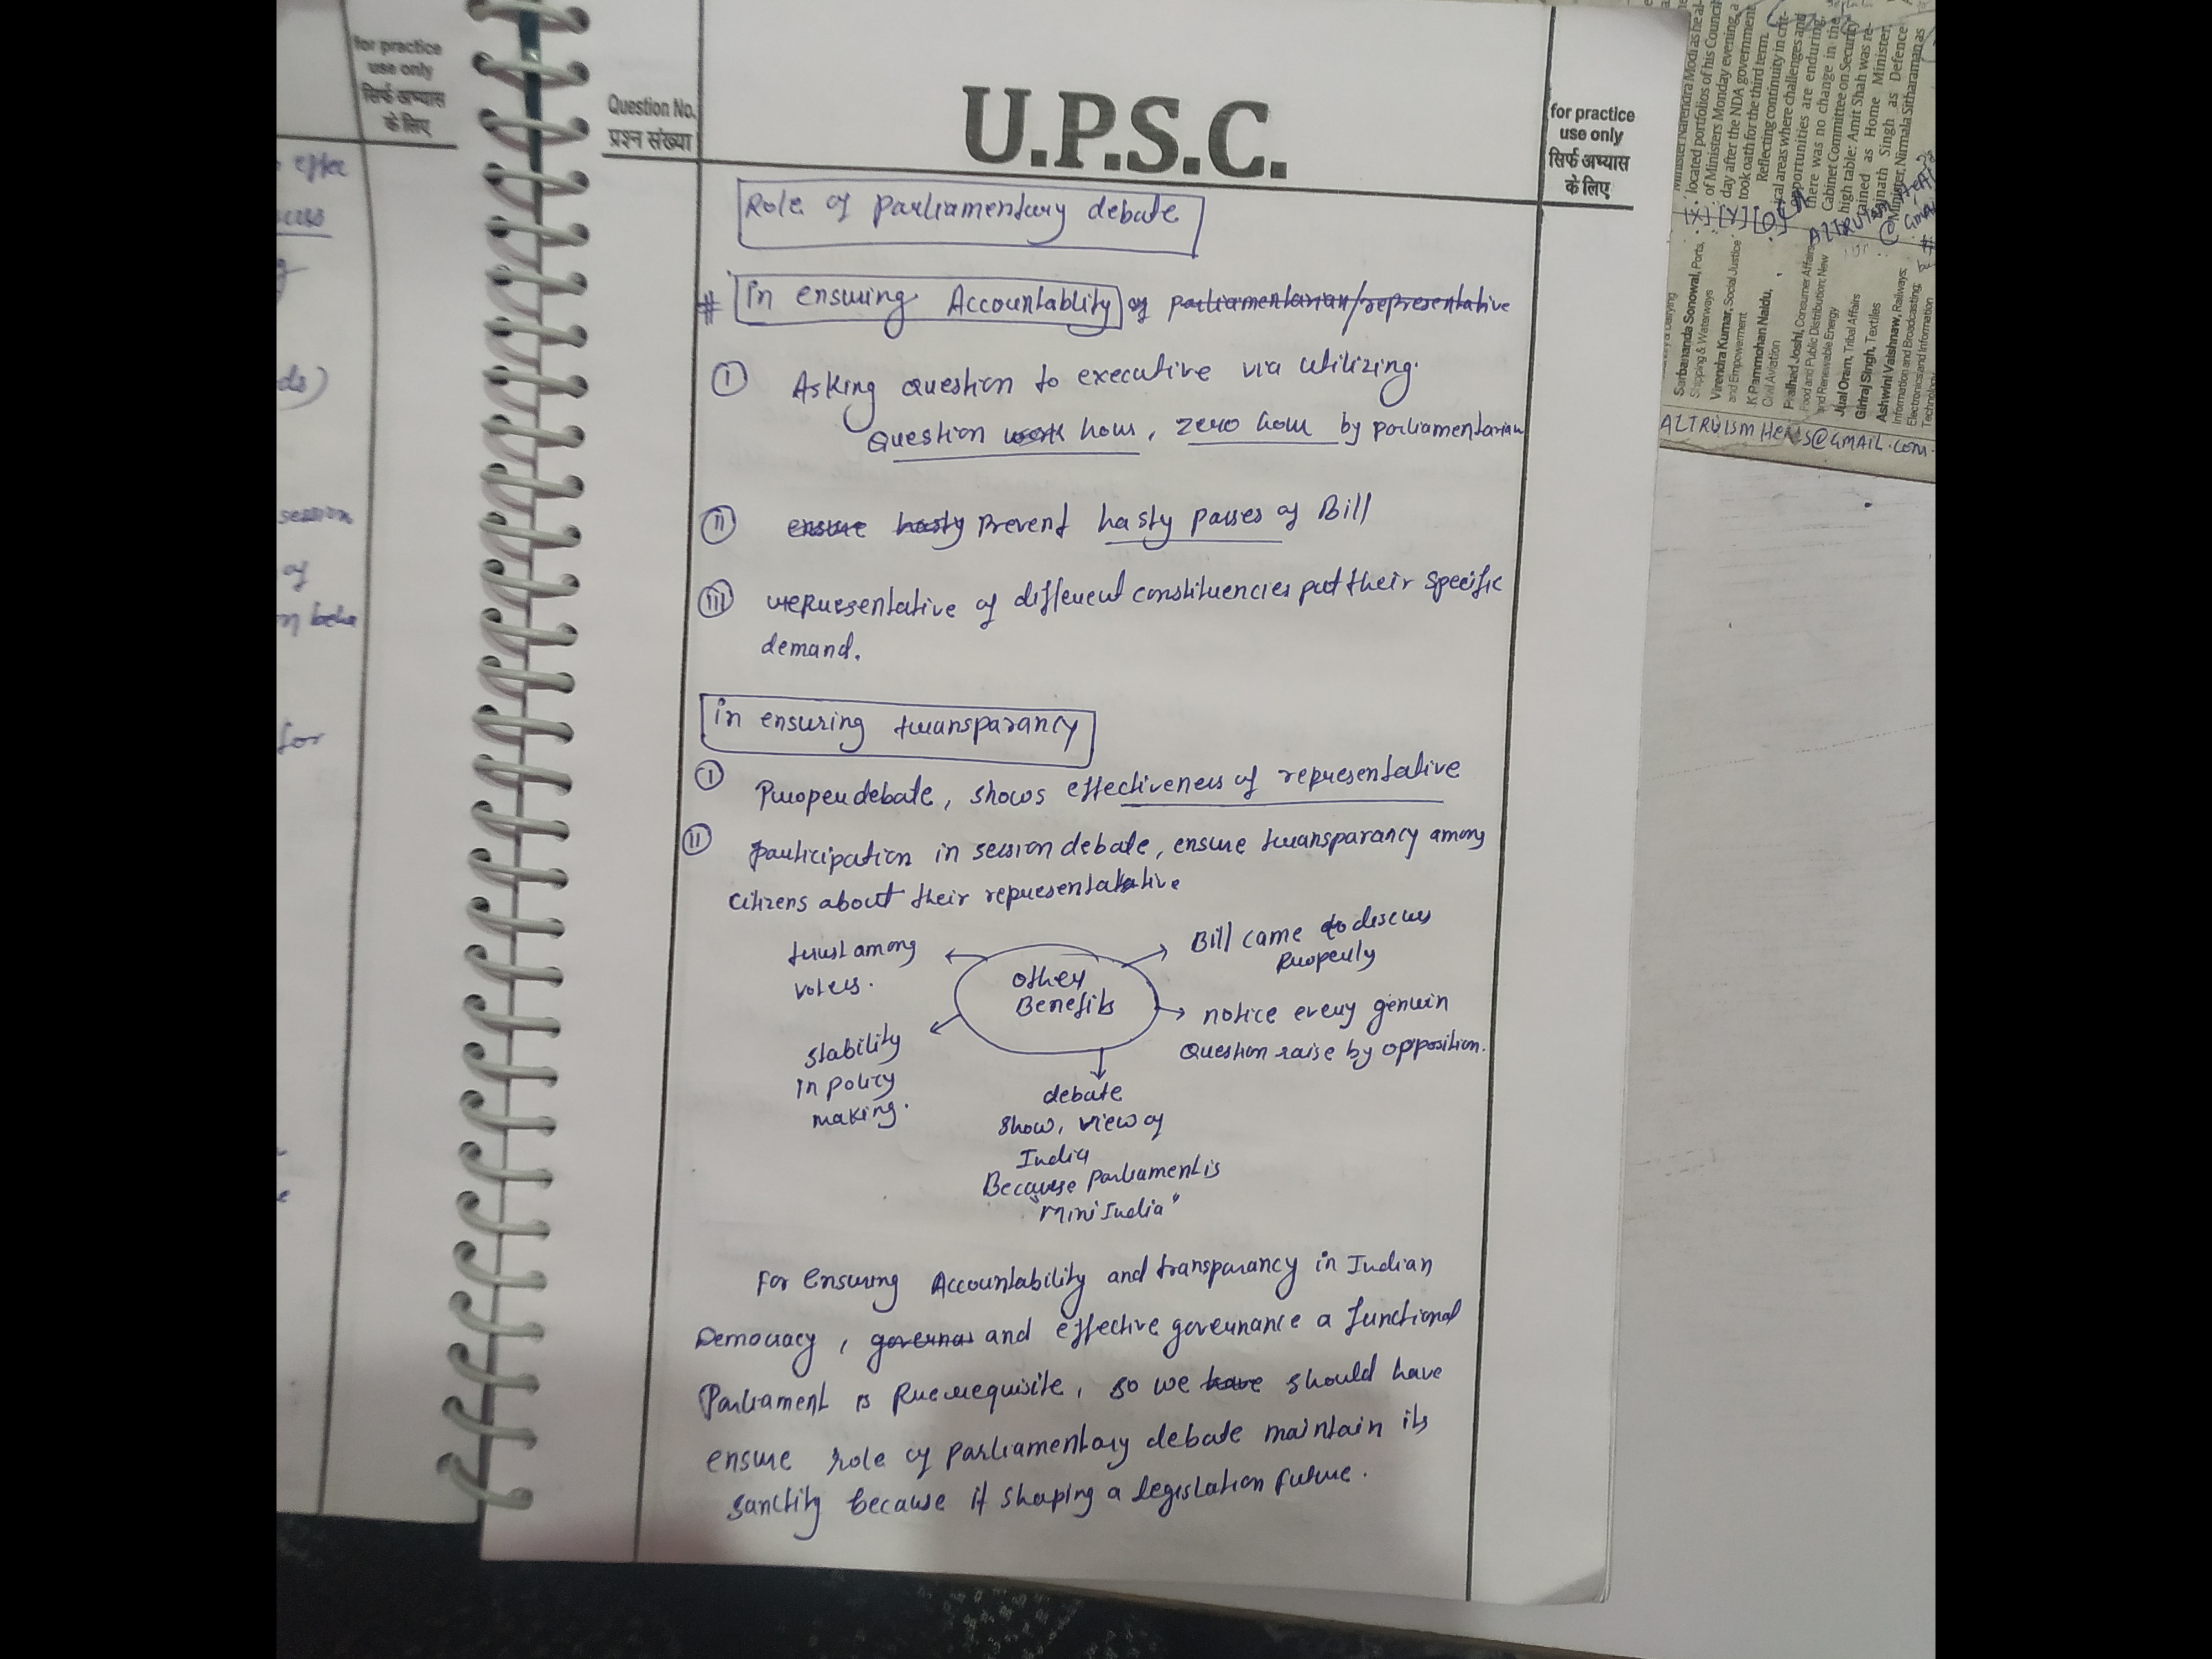 for practice
use only
सिर्फ अभ्यास
के लिए
effec
ds)
session
of
for
Question No.
प्रश्न संख्या
U.P.S.C.
for practice
use only
सिर्फ अभ्यास
के लिए
Role of parliamentary debate
# in ensuring Accountablity of parliamentarian/representative
I Asking question to executive via utilizing.
Question work hour, zero hour by parliamentarian
II ensure hasty Prevent hasty passes of Bill
III representative of different constituencies put their specific
demand.
in ensuring transparancy
I Proper debate, shows effectiveness of representative
II participation in session debate, ensure transparancy among
citizens about their representative
trust among
voters.
stability
in policy
making.
other
Benefits
Bill came to discuss
properly
notice every genuin
Question raise by opposition.
debate
show, view of
India
Because parliament is
"mini India"
For ensuring Accountability and transparancy in Indian
Democracy, governas and effective governance a functional
Parliament is Prerequisite, so we have should have
ensure role of parliamentary debate maintain its
sanctity because it shaping a legislation future.
Minister Narendra Modi as he al-
located portfolios of his Council
of Ministers Monday evening, a
day after the NDA government
took oath for the third term.
Reflecting continuity in crit-
ical areas where challenges and
opportunities are enduring,
there was no change in the
Cabinet Committee on Security
high table: Amit Shah was re-
tained as Home Minister,
Rajnath Singh as Defence
Minister, Nirmala Sitharaman as
[X] [Y] [O]
Sarbananda Sonowal, Ports,
Shipping & Waterways
Virendra Kumar, Social Justice
and Empowerment
K Rammohan Naidu,
Civil Aviation
Pralhad Joshi, Consumer Affairs
Food and Public Distribution; New
and Renewable Energy
Jual Oram, Tribal Affairs
Giriraj Singh, Textiles
Ashwini Vaishnaw, Railways;
Information and Broadcasting;
Electronics and Information
Technology
ALTRUISMHEALS@GMAIL.COM